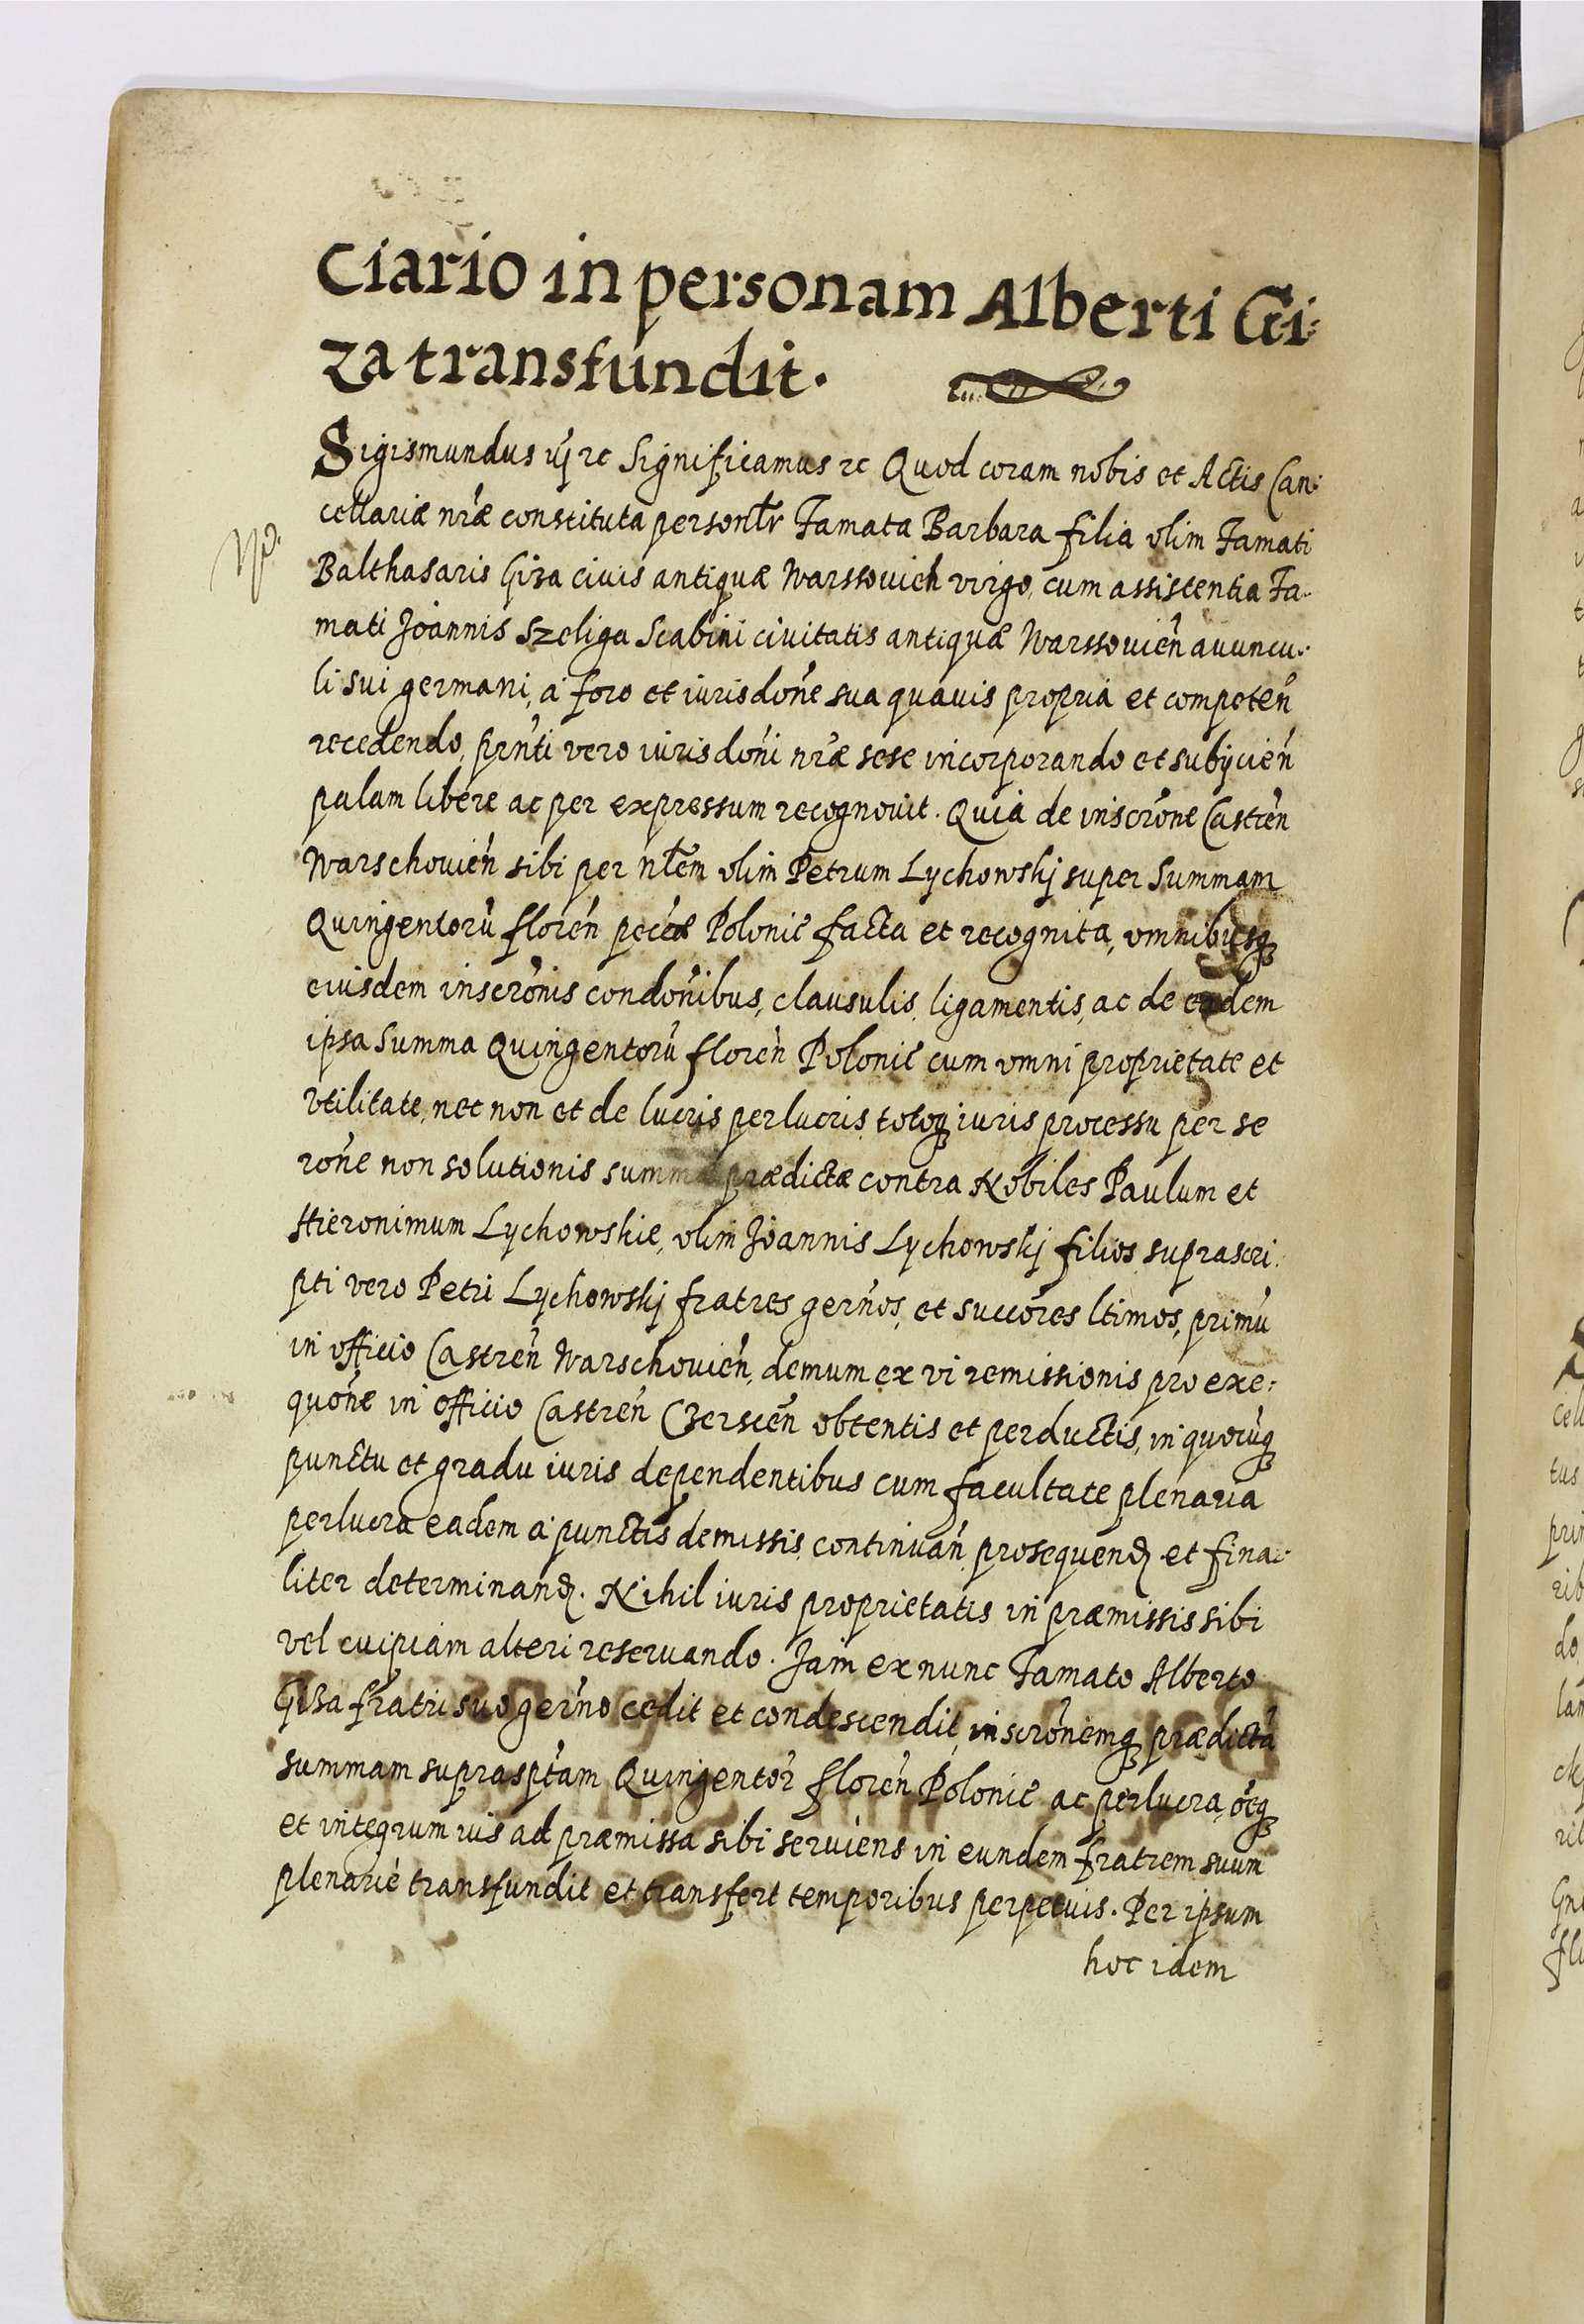 Ciario in personam Alberti Gi:
za transfundit.
Sigismundus iij rc Significamus rc Quod coram nobis et Actis Can:
cellariæ nr̃æ constituta personl̃r Famata Barbara filia olim Famati
Balthasaris Giza ciuis antiquæ Warssouieñ virgo, cum assistentia Fa-
mati Joannis Szeliga Scabini ciuitatis antiquæ Warssouieñ auuncu-
li sui germani, à foro et iurisdoñe sua quauis propria et competeñ
recedendo, prñti vero iurisdoñi nr̃æ sese incorporando et subijcieñ
palam libere ac per expressum recognouit. Quia de inscrõne Castreñ
Warschouieñ sibi per nl̃em olim Petrum Lychowskj super Summam
Quingentorũ floreñ pecc̃æ Polonic̃ facta et recognita, omnibusq
eiusdem inscrõnis condoñibus, clausulis, ligamentis, ac de eadem
ipsa Summa Quingentorũ floreñ Polonic̃ cum omni proprietate et
vtilitate, nec non et de lucris perlucris, totoq iuris processu per se
roñe non solutionis summæ prædictæ contra Nobiles Paulum et
Hieronimum Lychowskie, olim Joannis Lychowskj filios suprascri:
pti vero Petri Lychowskj fratres germ̃os, et succõres ltimos, primũ
in officio Castreñ Warschouieñ, demum ex vi remissionis pro exe:
quoñe in officio Castreñ Czersceñ obtentis et perductis, in quocũq
punctu et gradu iuris dependentibus cum facultate plenaria
perlucra eadem à punctis demissis, continuañ, prosequend et fina:
liter determinand. Nihil iuris proprietatis in præmissis sibi
vel cuipiam alteri reseruando. Jam ex nunc Famato Alberto
Giza fratri suo germ̃o cedit et condescendit, inscrõnemq prædictã
summam supraspt̃am Quingentor̃ floreñ Polonic̃ ac perlucra, õeq
et integrum ius ad præmissa sibi seruiens in eundem fratrem suum
plenariè transfundit et transfert temporibus perpetuis. Per ipsum
hoc idem